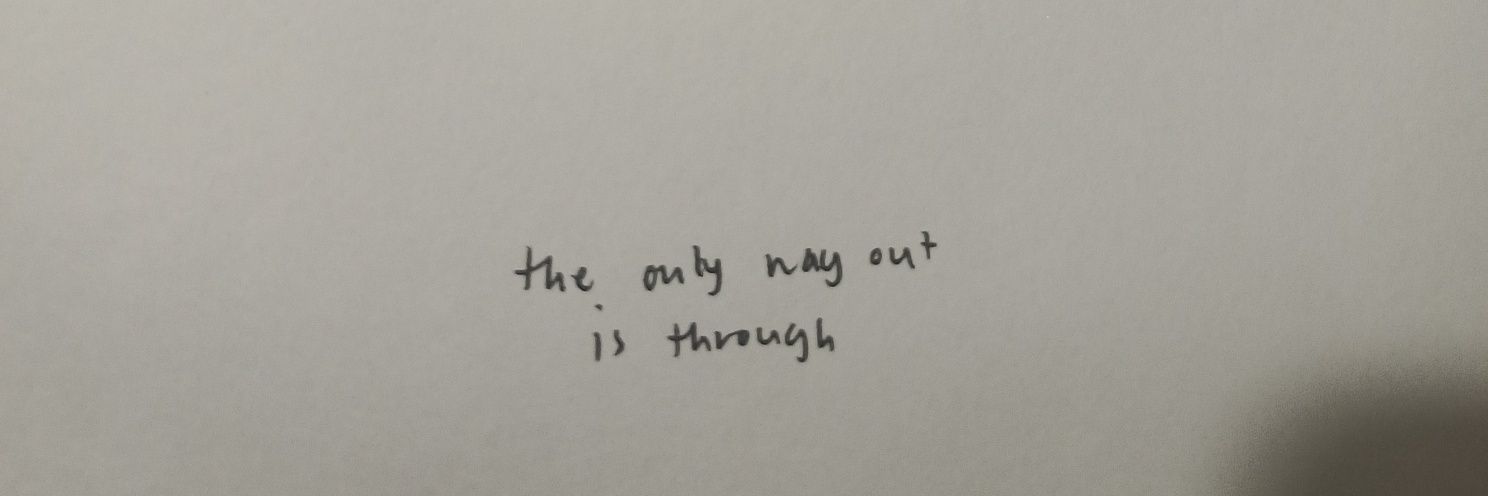 the only way out
is through